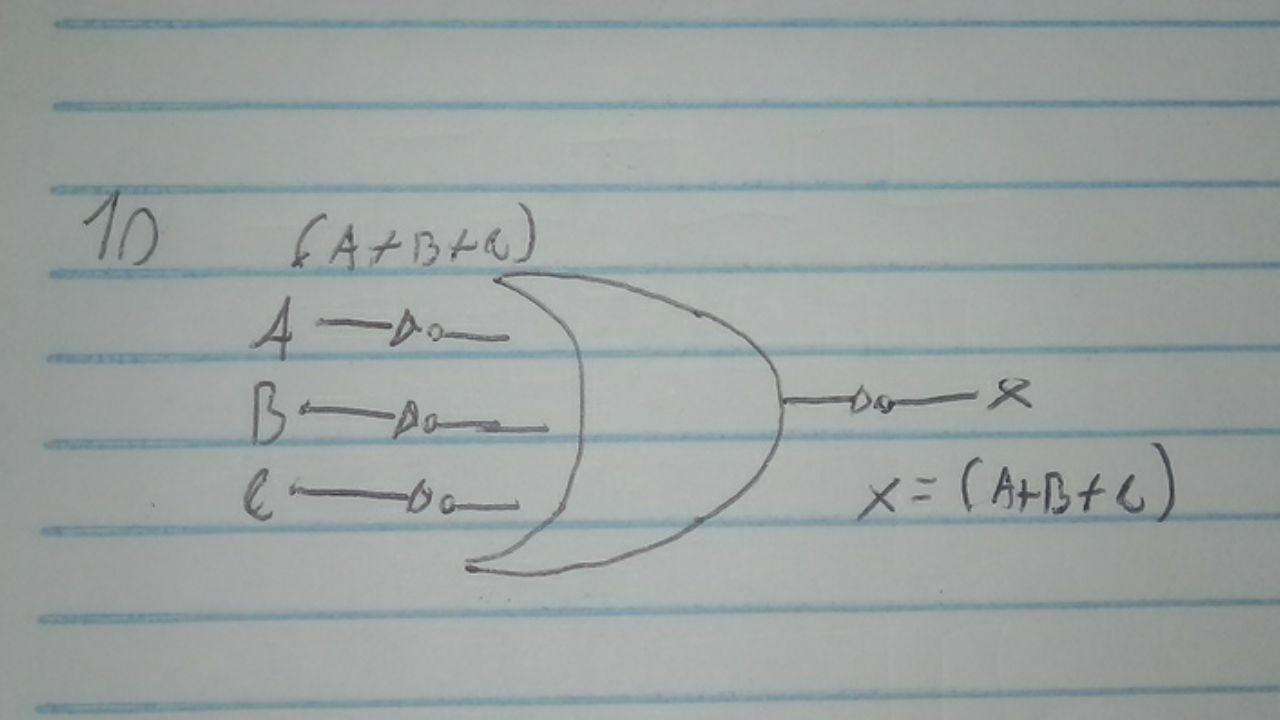 10 (A+B+C)
A
B
C
X
X = (A+B+C)